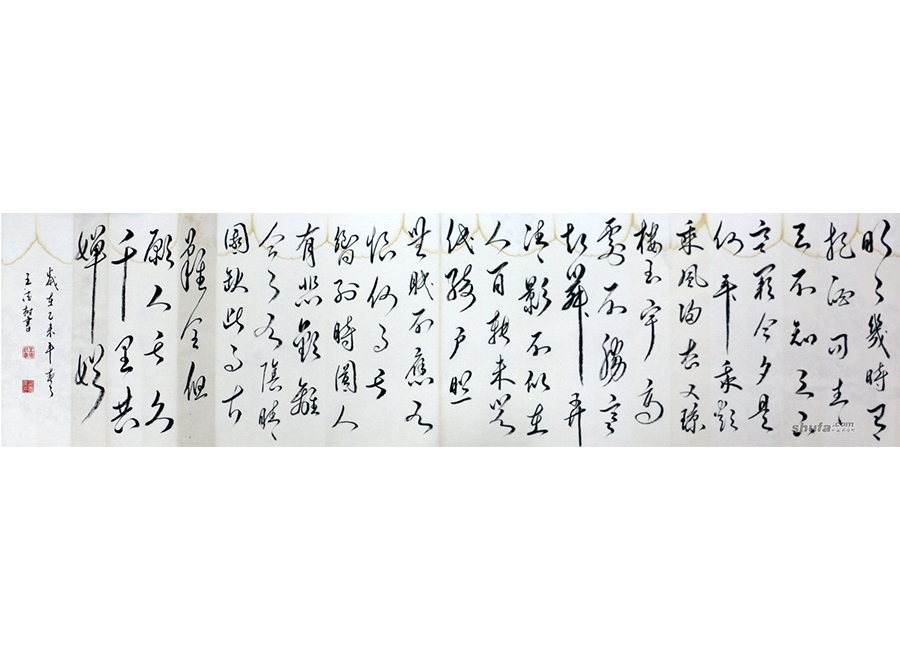 明月幾時有
把酒問青
天不知天上
宮闕今夕是
何年我欲
乘風歸去又瓊
樓玉宇高
處不勝寒
起舞弄
清影不似在
人間轉朱閣
低綺戶照
無眠不應有
恨何事長
別時圓人
有悲歡離
合月有陰晴
圓缺此事古
難全但
願人長久
千里共
嬋娟
歲在乙未年春
王書
shufa.com